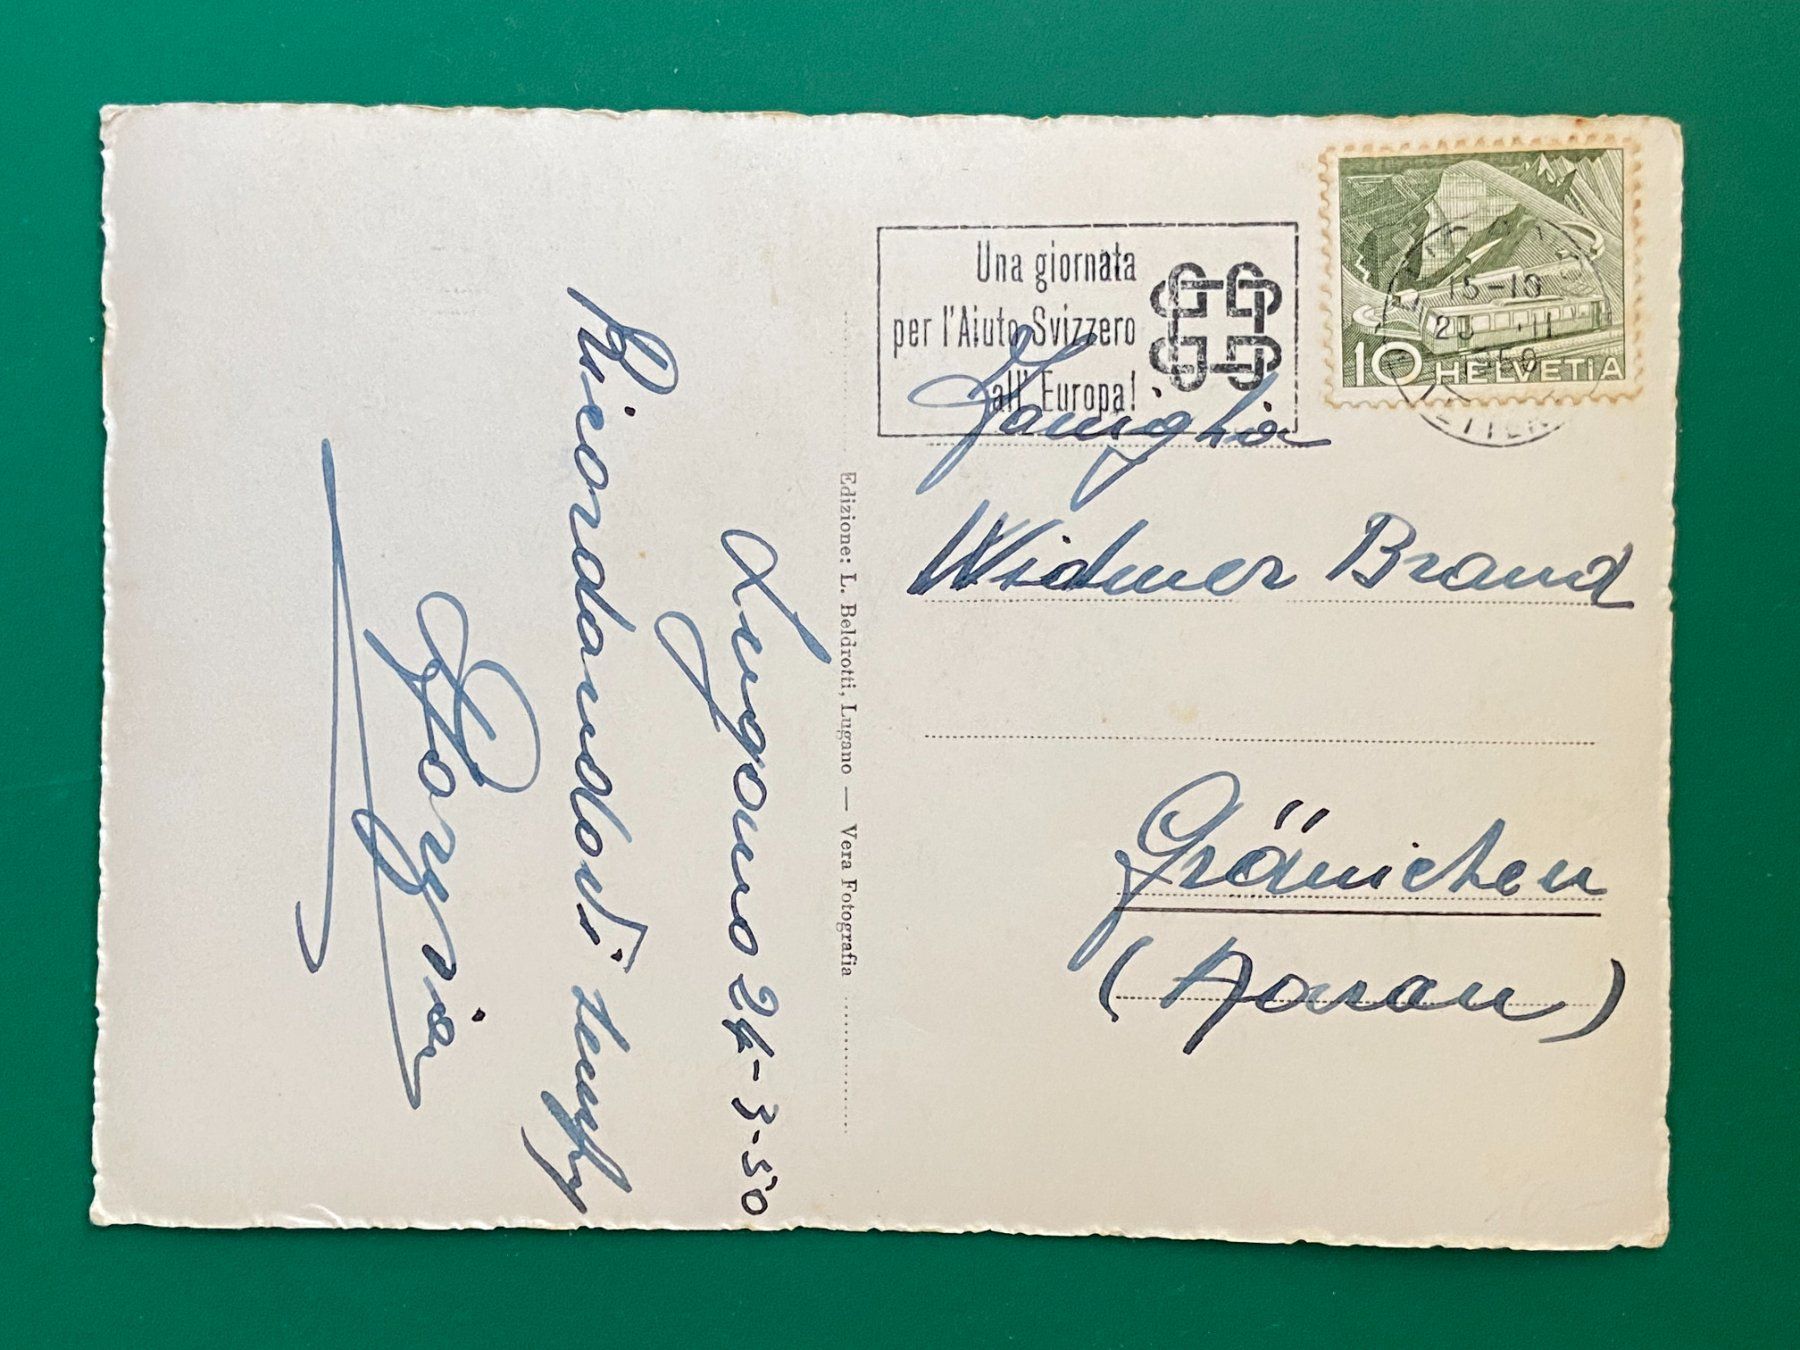 Una giornata
per l'Aiuto Svizzero
all' Europa!
10 HELVETIA
15-16
1950
Famiglia
Widmer Brand
Gränichen
(Aarau)
Edizione: L. Beldrotti, Lugano — Vera Fotografia
Lugano 24-3-50
Ricordandovi sempre